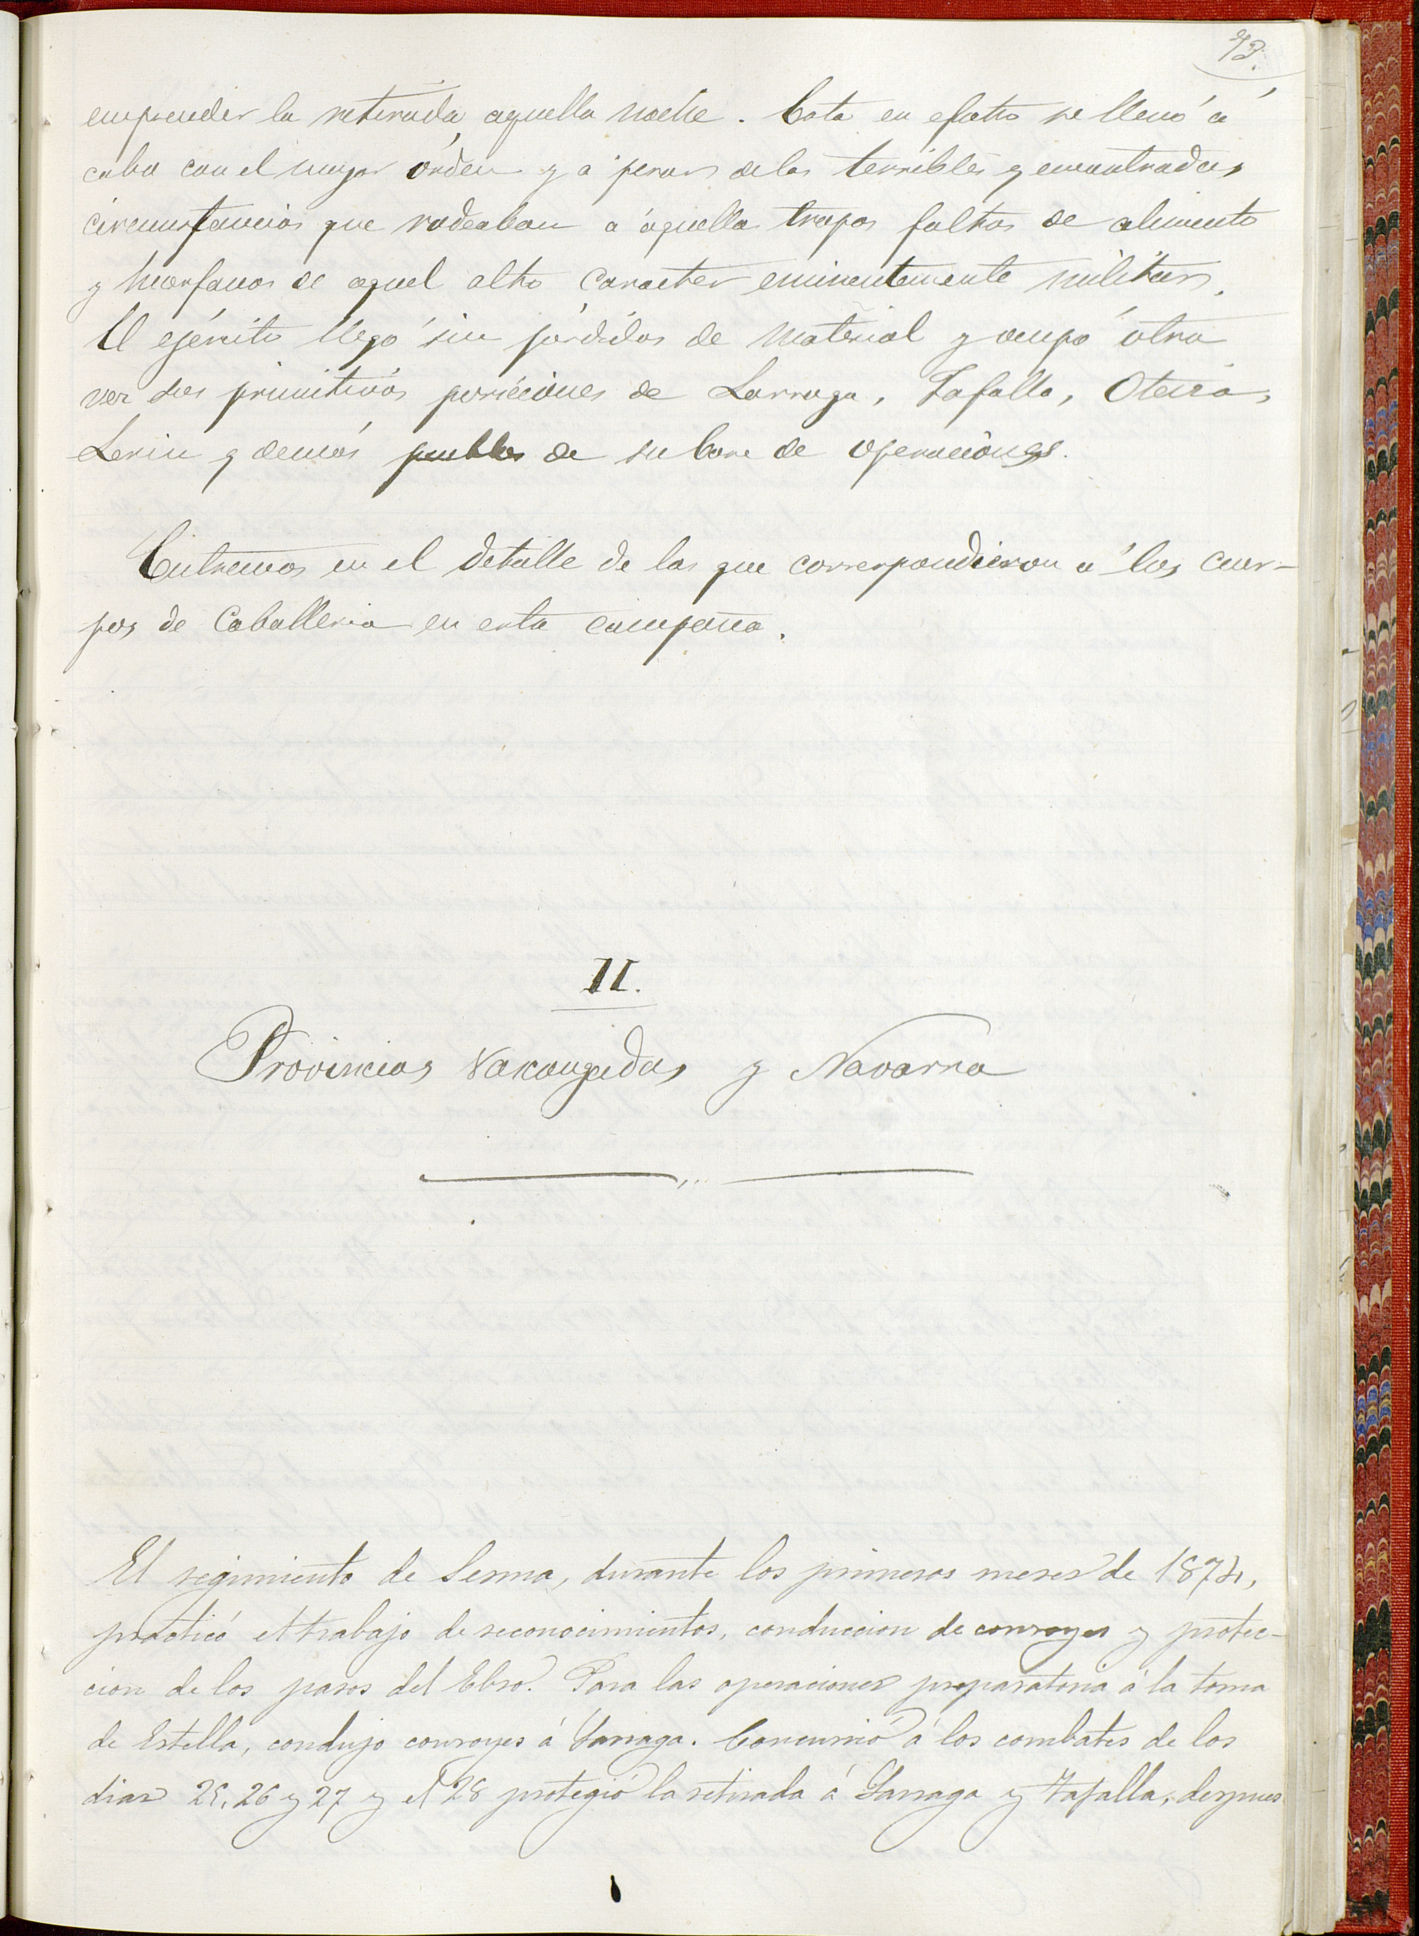 73.
emprender la retirada aquella noche. Esta en efecto se llevó á
cabo con el mayor órden y á pesar de las terribles y encontradas
circunstancias que rodeaban á aquellas tropas faltas de alimento
y huerfanas de aquel alto caracter eminentemente militar.
El ejército llegó sin pérdidas de material y ocupó otra
vez sus primitivas posiciones de Larraga, Tafalla, Oteiza,
Lerin y demás pueblos de su base de operaciones.
Entremos en el detalle de las que correspondieron á los cuer-
pos de Caballeria en esta campaña.
II.
Provincias Vascongadas y Navarra
El regimiento de Sesma, durante los primeros meses de 1874,
practicó el trabajo de reconocimientos, conduccion de convoyes y protec-
cion de los pasos del Ebro. Para las operaciones preparatoria á la toma
de Estella, condujo convoyes á Larraga. Concurrió á los combates de los
dias 25, 26 y 27 y el 28 protegió la retirada á Larraga y Tafalla, despues